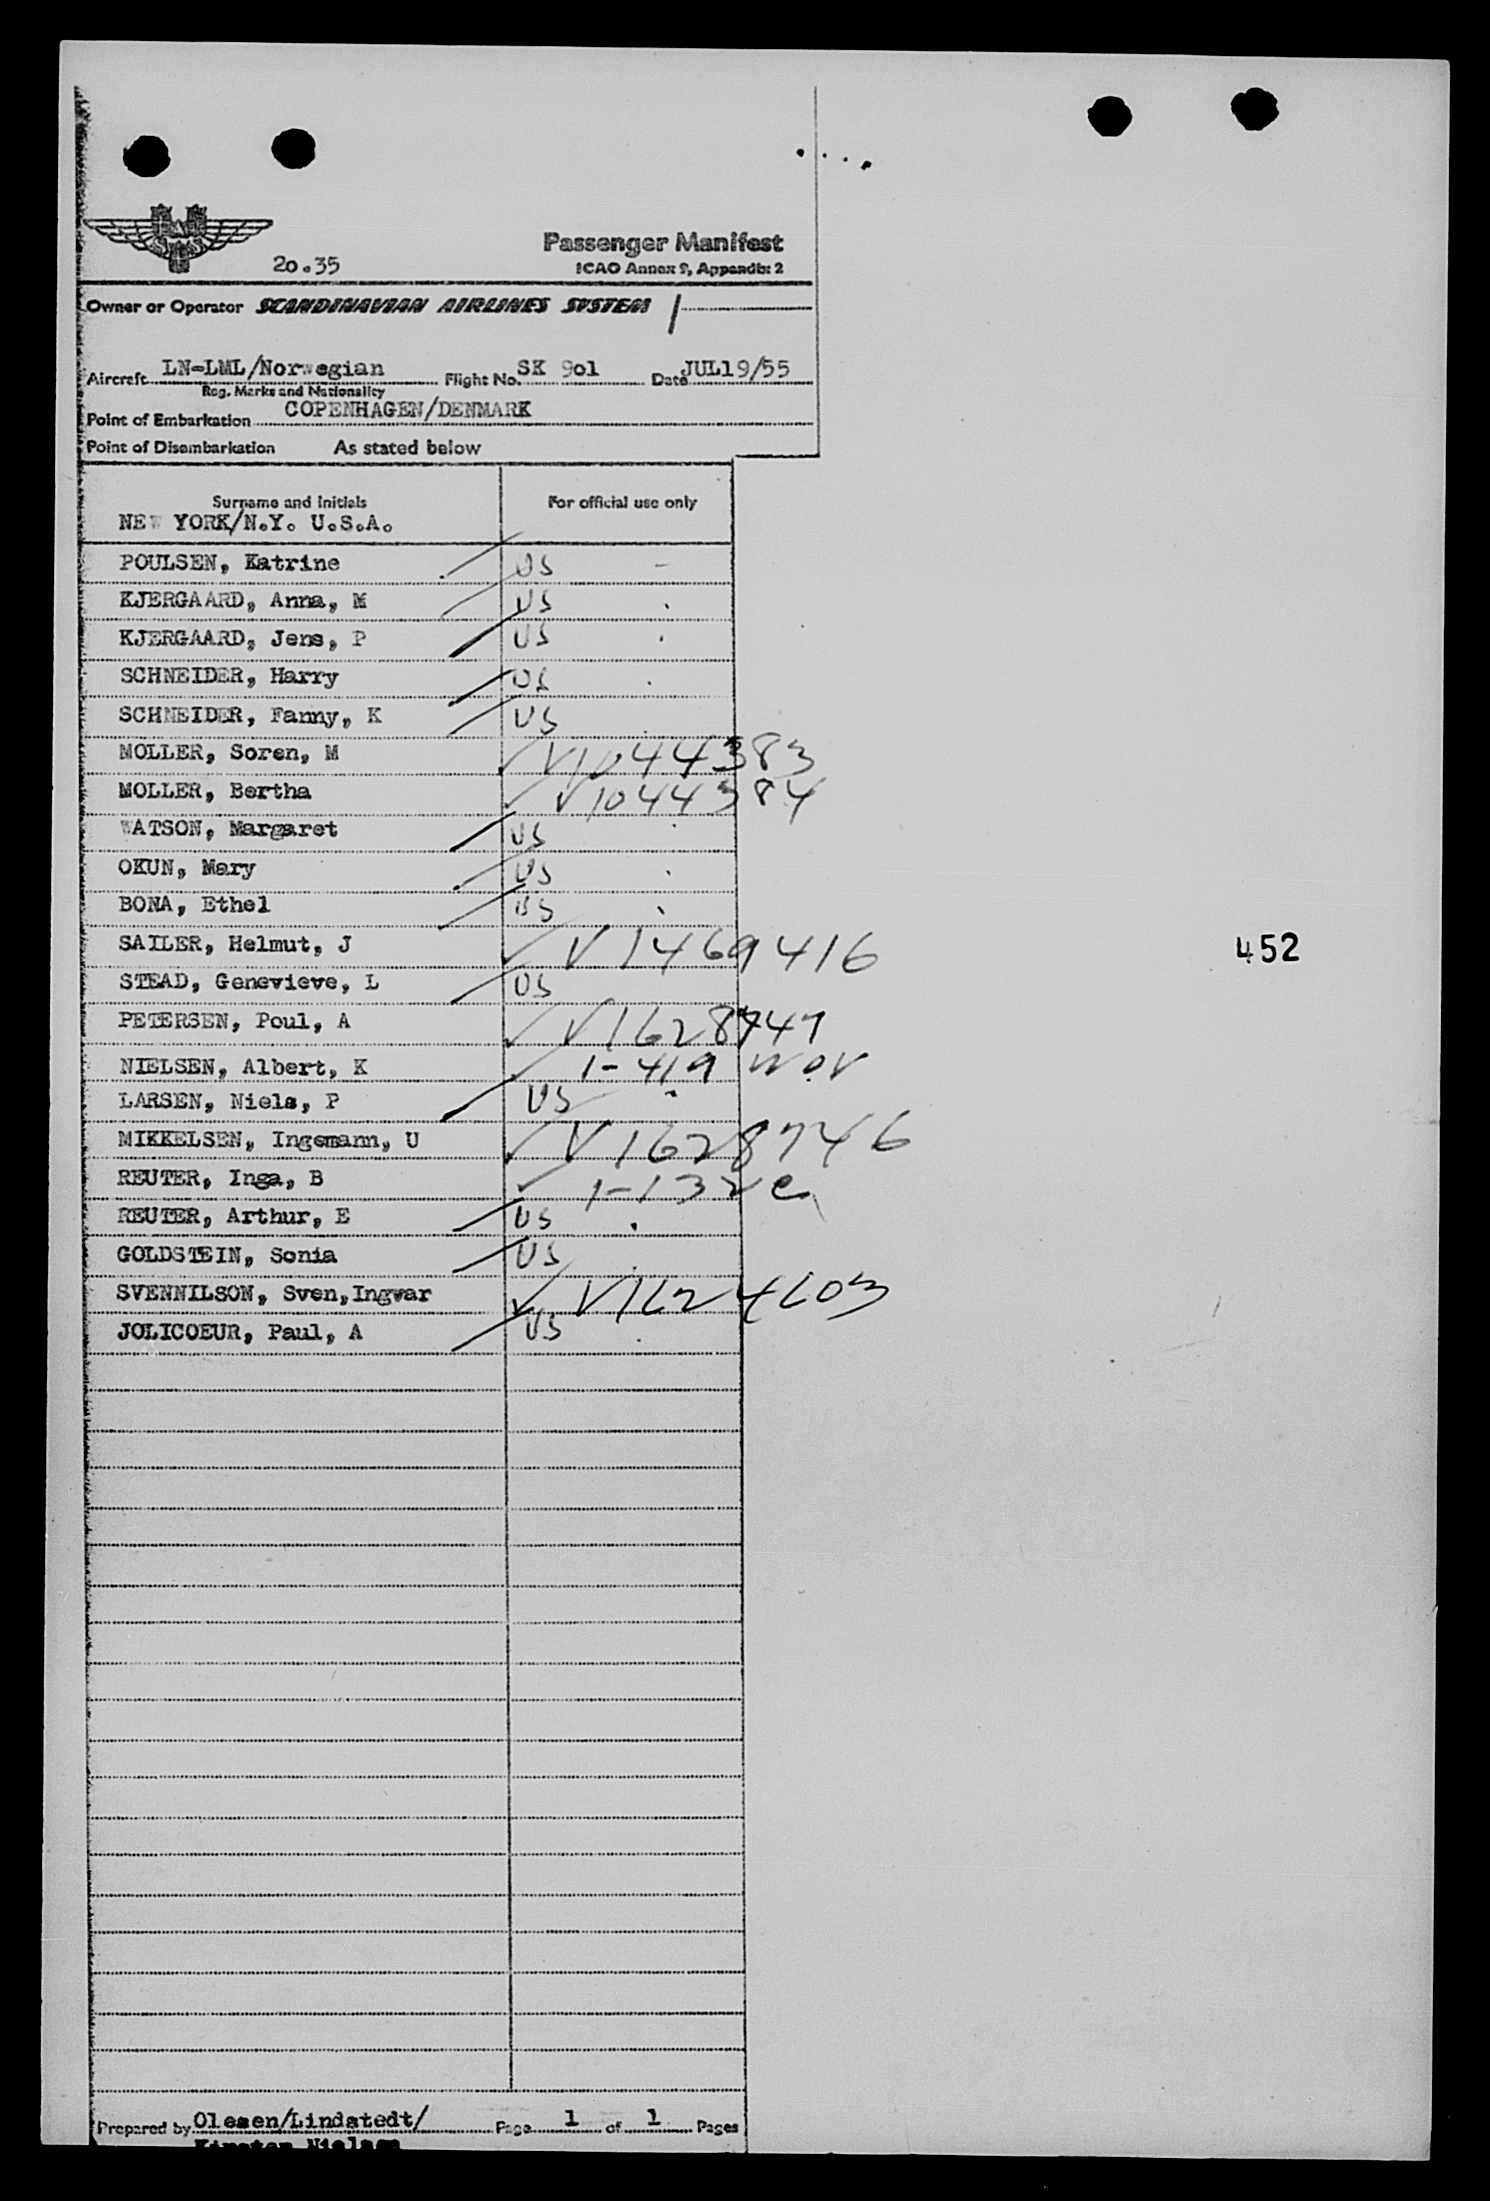 20.35
Passenger Manifest
ICAO Annex 9, Appendix 2
Owner or Operator SCANDINAVIAN AIRLINES SYSTEM
Aircraft LN-LML/Norwegian Flight No. SK 9o1 Date JUL19/55
Reg. Marks and Nationality
Point of Embarkation COPENHAGEN/DENMARK
Point of Disembarkation As stated below
Surname and Initials For official use only
NEW YORK/N.Y. U.S.A.
POULSEN, Katrine US
KJERGAARD, Anna, M US
KJERGAARD, Jens, P US
SCHNEIDER, Harry US
SCHNEIDER, Fanny, K US
MOLLER, Soren, M V1044383
MOLLER, Bertha V1044384
WATSON, Margaret US
OKUN, Mary US
BONA, Ethel US
SAILER, Helmut, J V1469416
452
STEAD, Genevieve, L US
PETERSEN, Poul, A V1628747
NIELSEN, Albert, K 1-419
LARSEN, Niels, P US
MIKKELSEN, Ingemann, U V1628746
REUTER, Inga, B 1-132
REUTER, Arthur, E US
GOLDSTEIN, Sonia US
SVENNILSON, Sven,Ingvar V1624603
JOLICOEUR, Paul, A US
Prepared by Olesen/Lindstedt/ Page 1 of 1 Pages